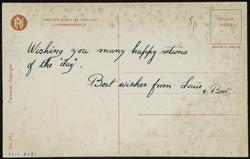 THIS SPACE MAY BE USED FOR
CORRESPONDENCE
STAMP
HERE
5p
Wishing you many happy returns
of the "day".
Best wishes from Doris & Bert.
Universal Copyright